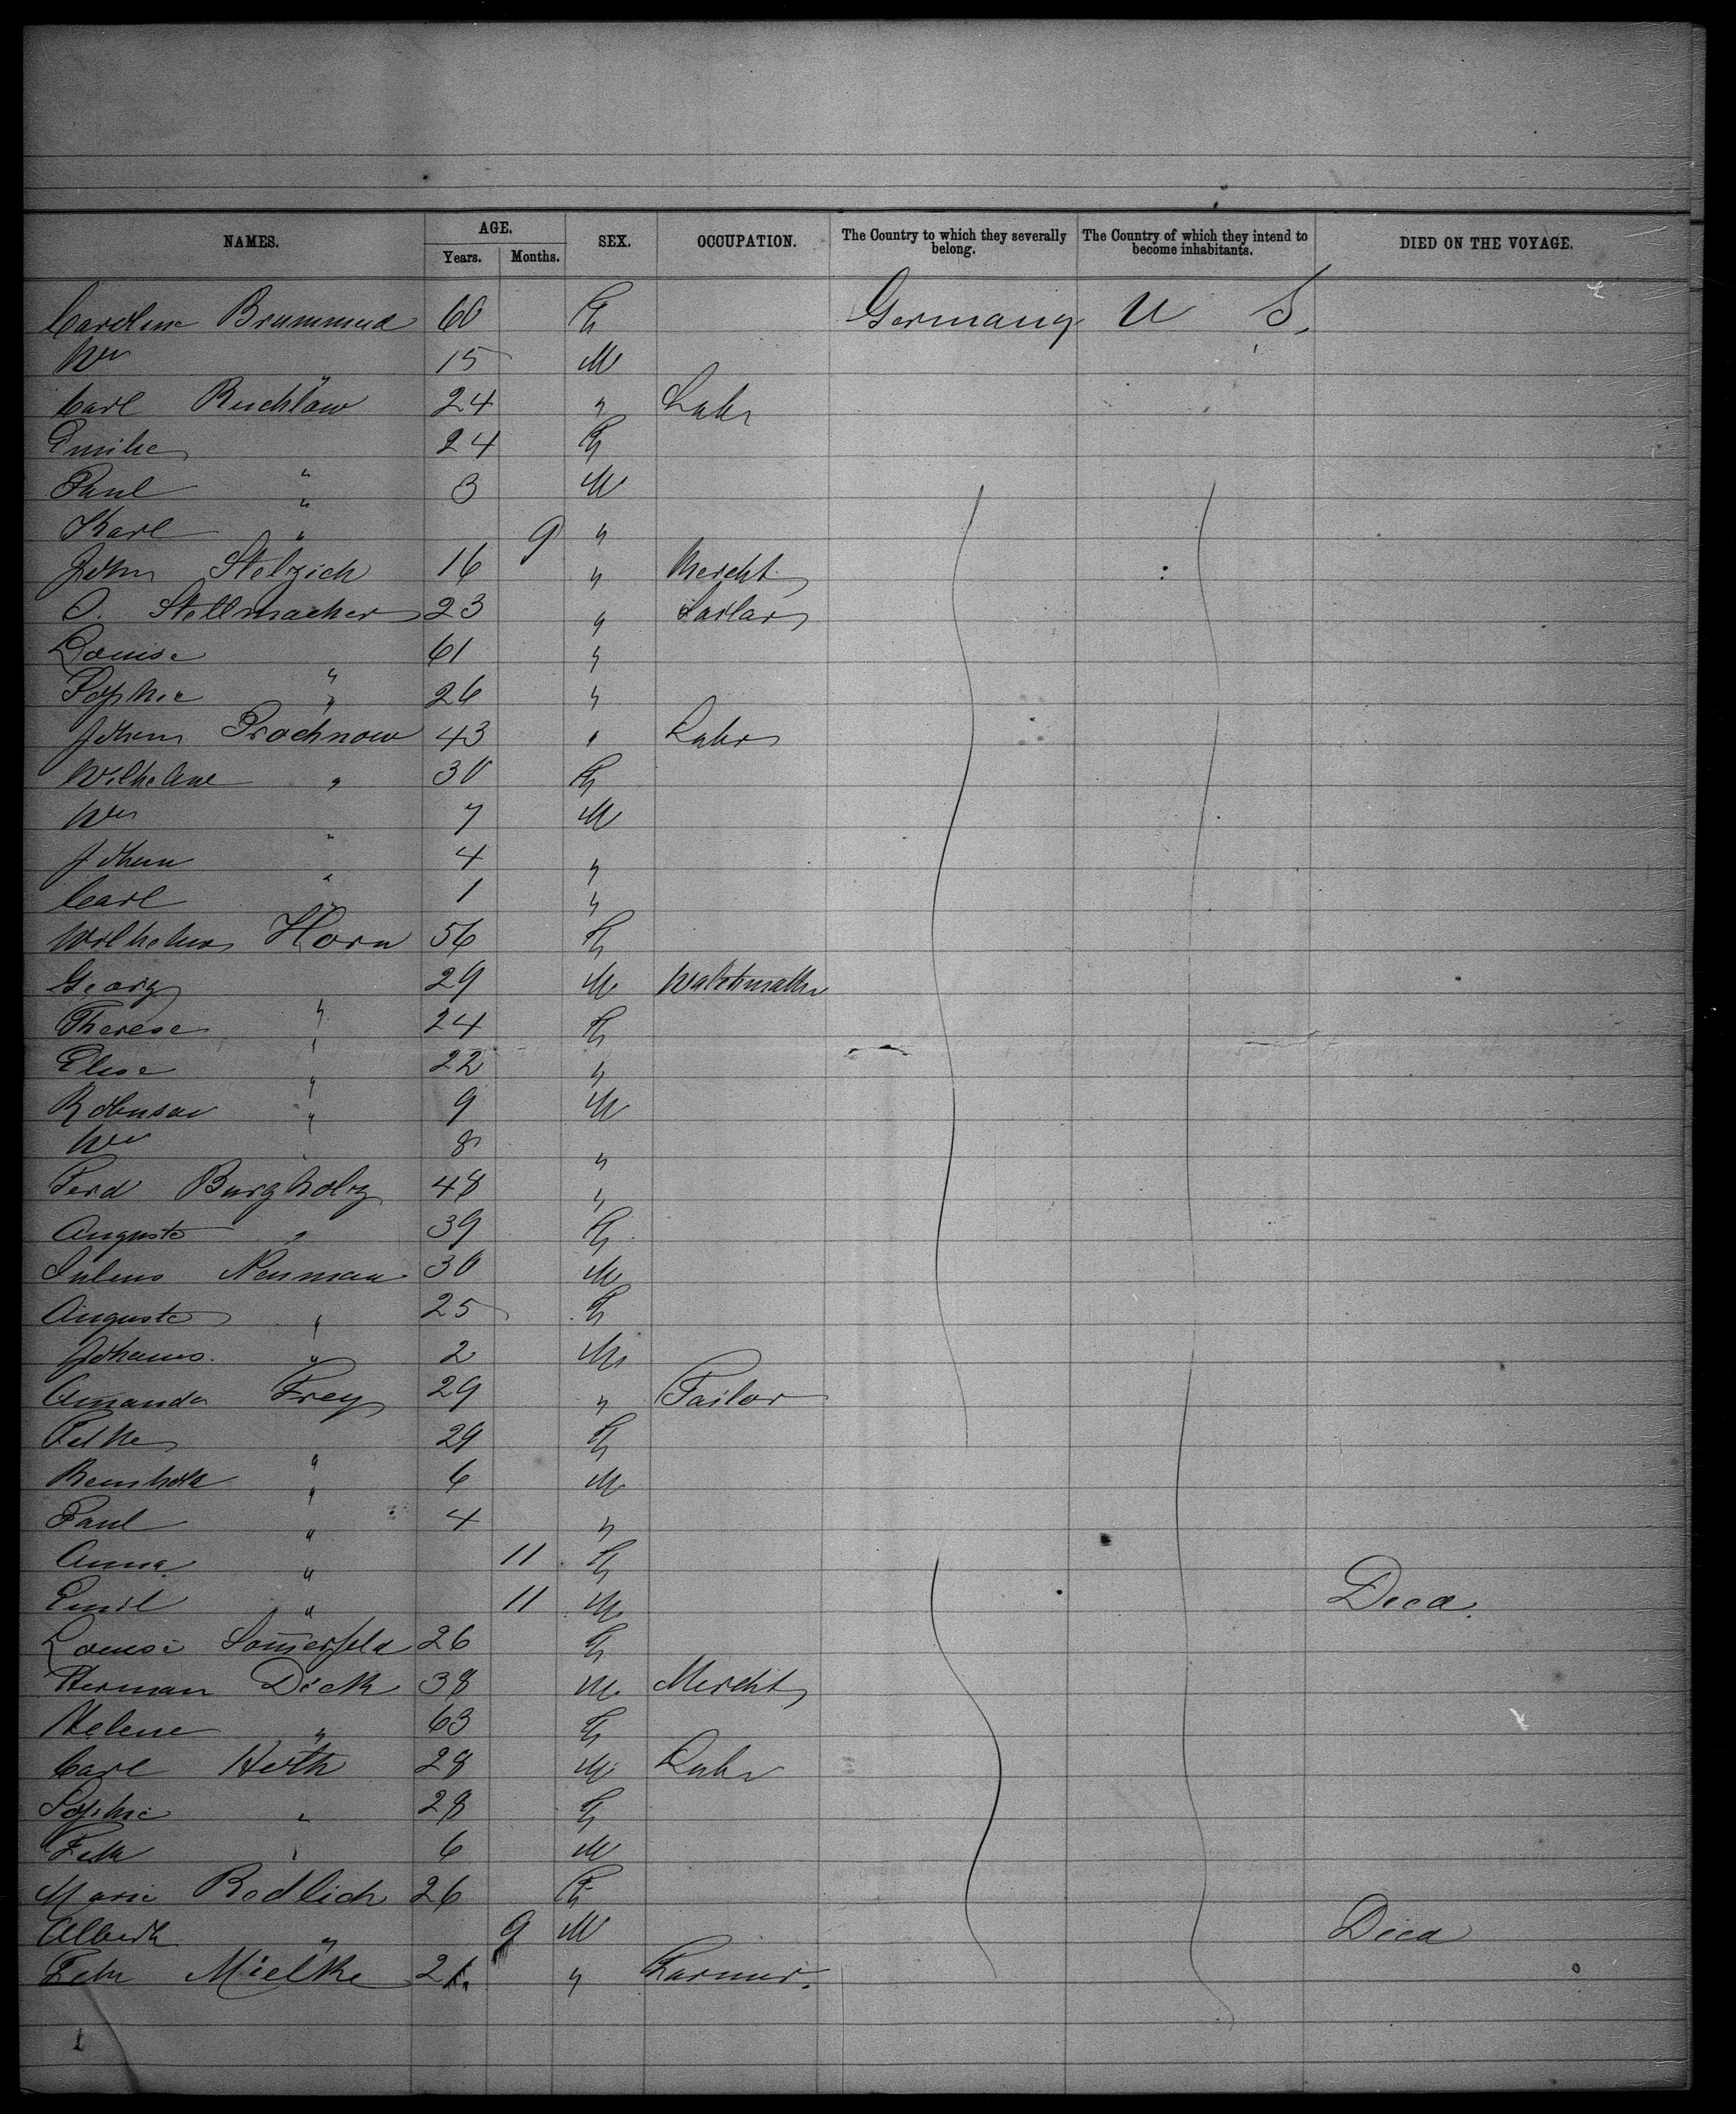 NAMES. AGE. SEX. OCCUPATION. The Country to which they severally belong. The Country of which they intend to become inhabitants. DIED ON THE VOYAGE.
Years. Months.
Caroline Brummund 60 F Germany U S.
Wm " 15 M
Carl Ruchlow 24 " Labr
Emilie " 24 F
Paul " 3 M
Karl " 9 "
John Stelzich 16 " Mercht
O. Stellmacher 23 " Sailor
Louise " 61 "
Sophie " 26 "
Johan Prochnow 43 " Labr
Wilhelme " 30 F
Wm " 7 M
Johan " 4 "
Carl " 1 "
Wilhelm Horn 56 F
Georg " 29 M
Therese " 24 F
Elise " 22 "
Robinson " 9 M
Wm " 8 "
Ferd Burgholz 48 "
Auguste " 39 F
Julius Neuman 30 M
Auguste " 25 F
Johanes " 2 M
Amanda Frey 29 " Tailor
" 29 F
Reinhold " 6 M
Paul " 4 "
Anna " 11 F
Emil " 11 M Died.
Louise Somerfeld 26 F
Herman Dick 38 M Mercht
Helene " 63 F
Carl Heth 28 M Labr
Sophie " 28 F
" 6 M
Marie Rodlich 26 F
Albert " 9 M Died
Mielke 21 " Farmer.